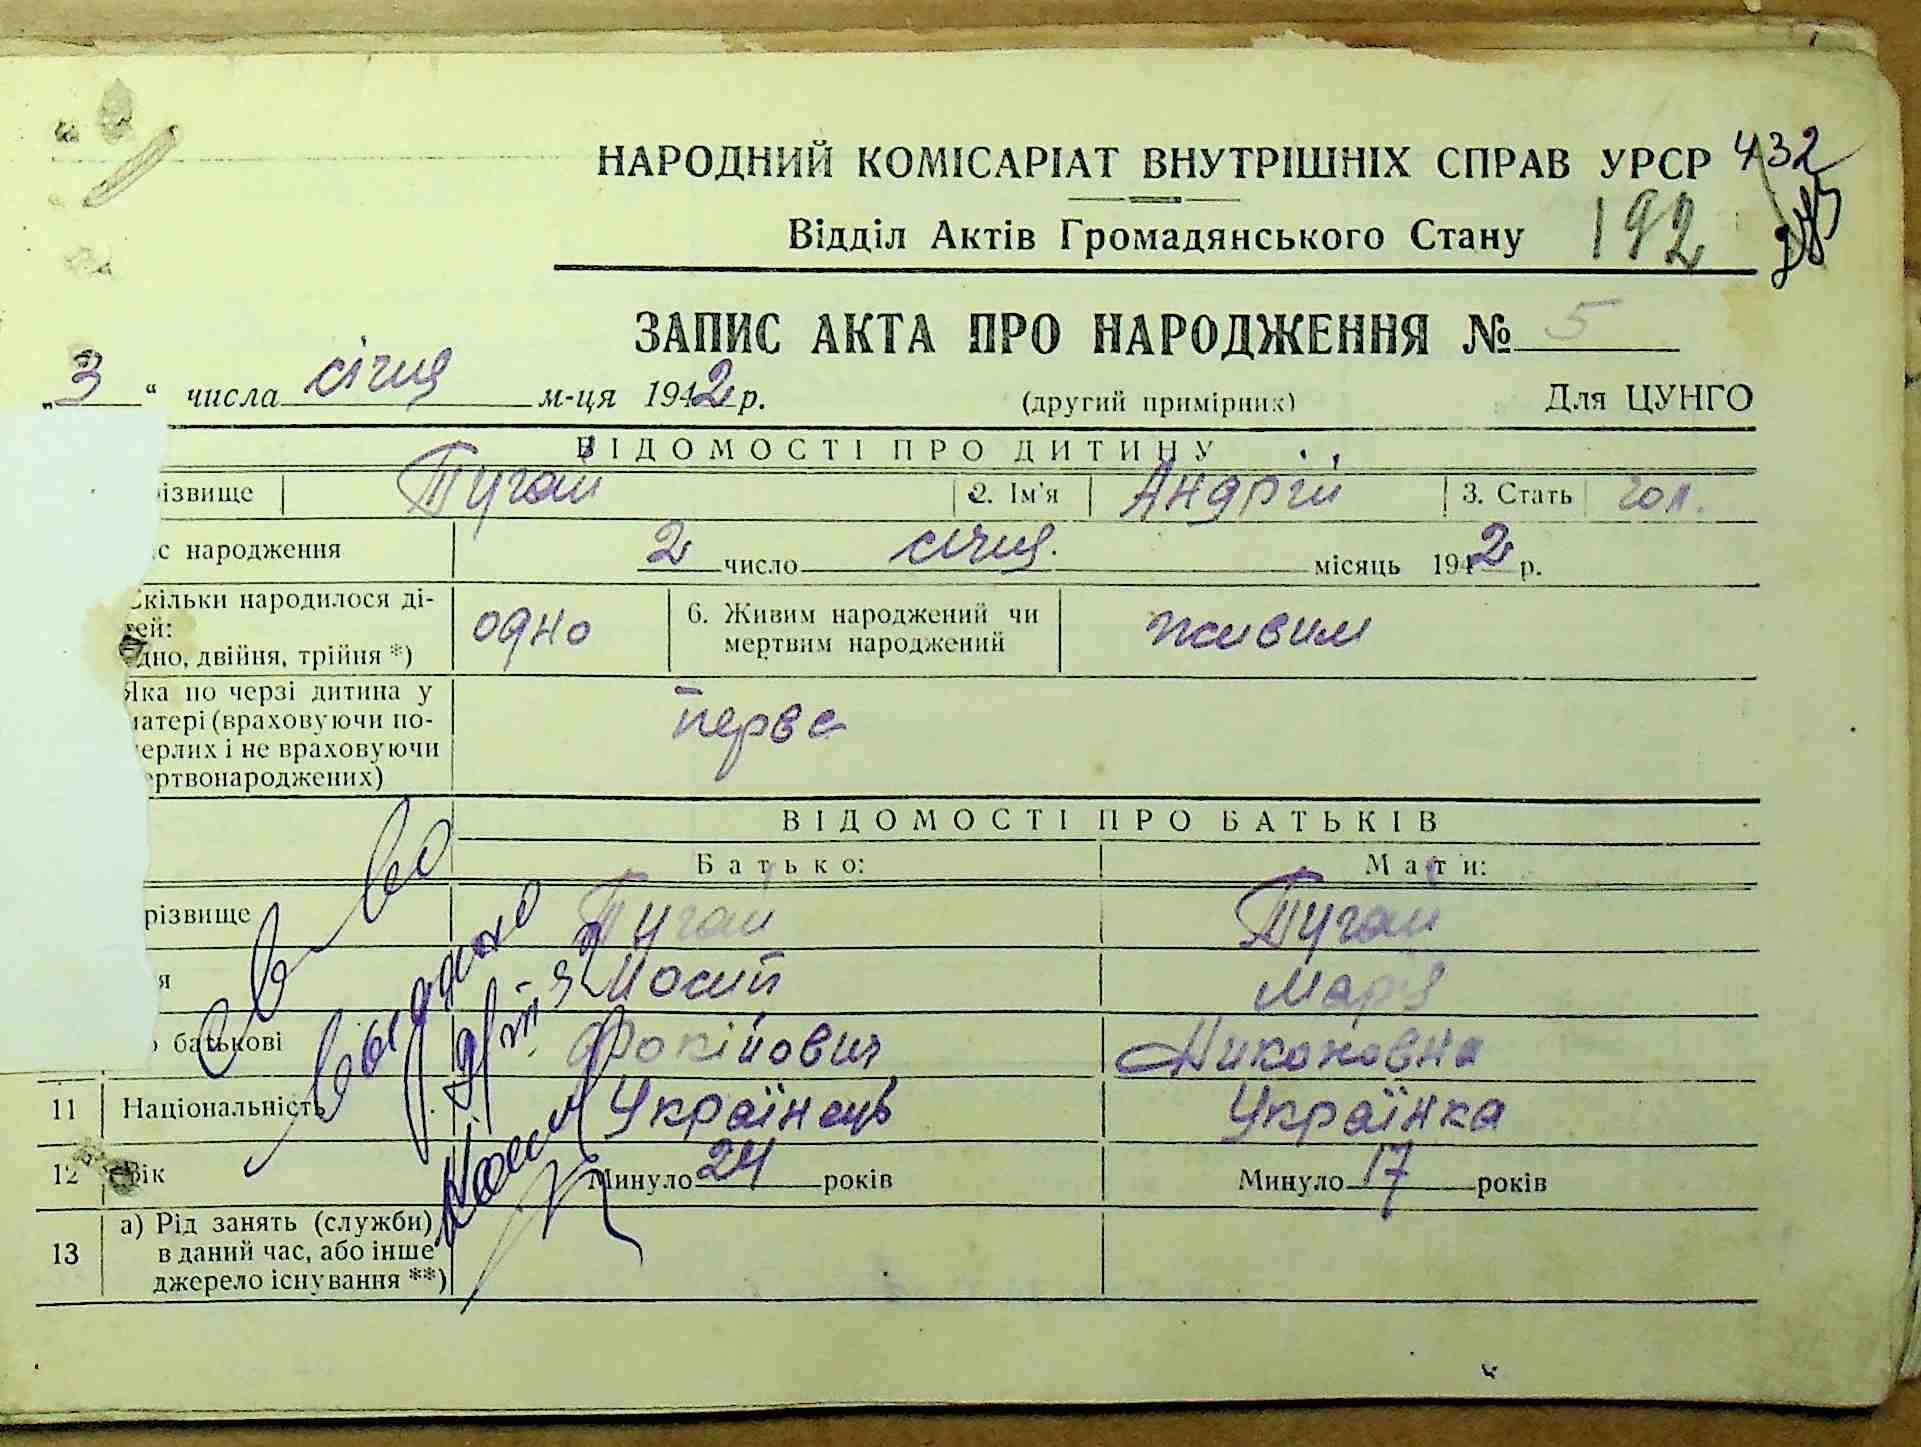 НАРОДНИЙ КОМІСАРІАТ ВНУТРІШНІХ СПРАВ УРСР 432
Відділ Актів Громадянського Стану 192
ЗАПИС АКТА ПРО НАРОДЖЕННЯ № 5
„3“ числа січня м-ця 1942 р. (другий примірник) Для ЦУНГО
ВІДОМОСТІ ПРО ДИТИНУ
ізвище Тугай 2. Ім'я Андрій 3. Стать чол.
с народження 2 число січня місяць 1942 р.
Скільки народилося ді-
тей:
одно, двійня, трійня *) одно 6. Живим народжений чи
мертвим народжений живим
Яка по черзі дитина у
матері (враховуючи по-
мерлих і не враховуючи
мертвонароджених) перва
ВІДОМОСТІ ПРО БАТЬКІВ
Батько: Мати:
різвище Тугай Тугай
я Йосип Марія
о батькові Фокійович Никоновна
11 Національність Українець Українка
12 Вік Минуло 24 років Минуло 17 років
13 а) Рід занять (служби)
в даний час, або інше
джерело існування **)
с в-во
выдано